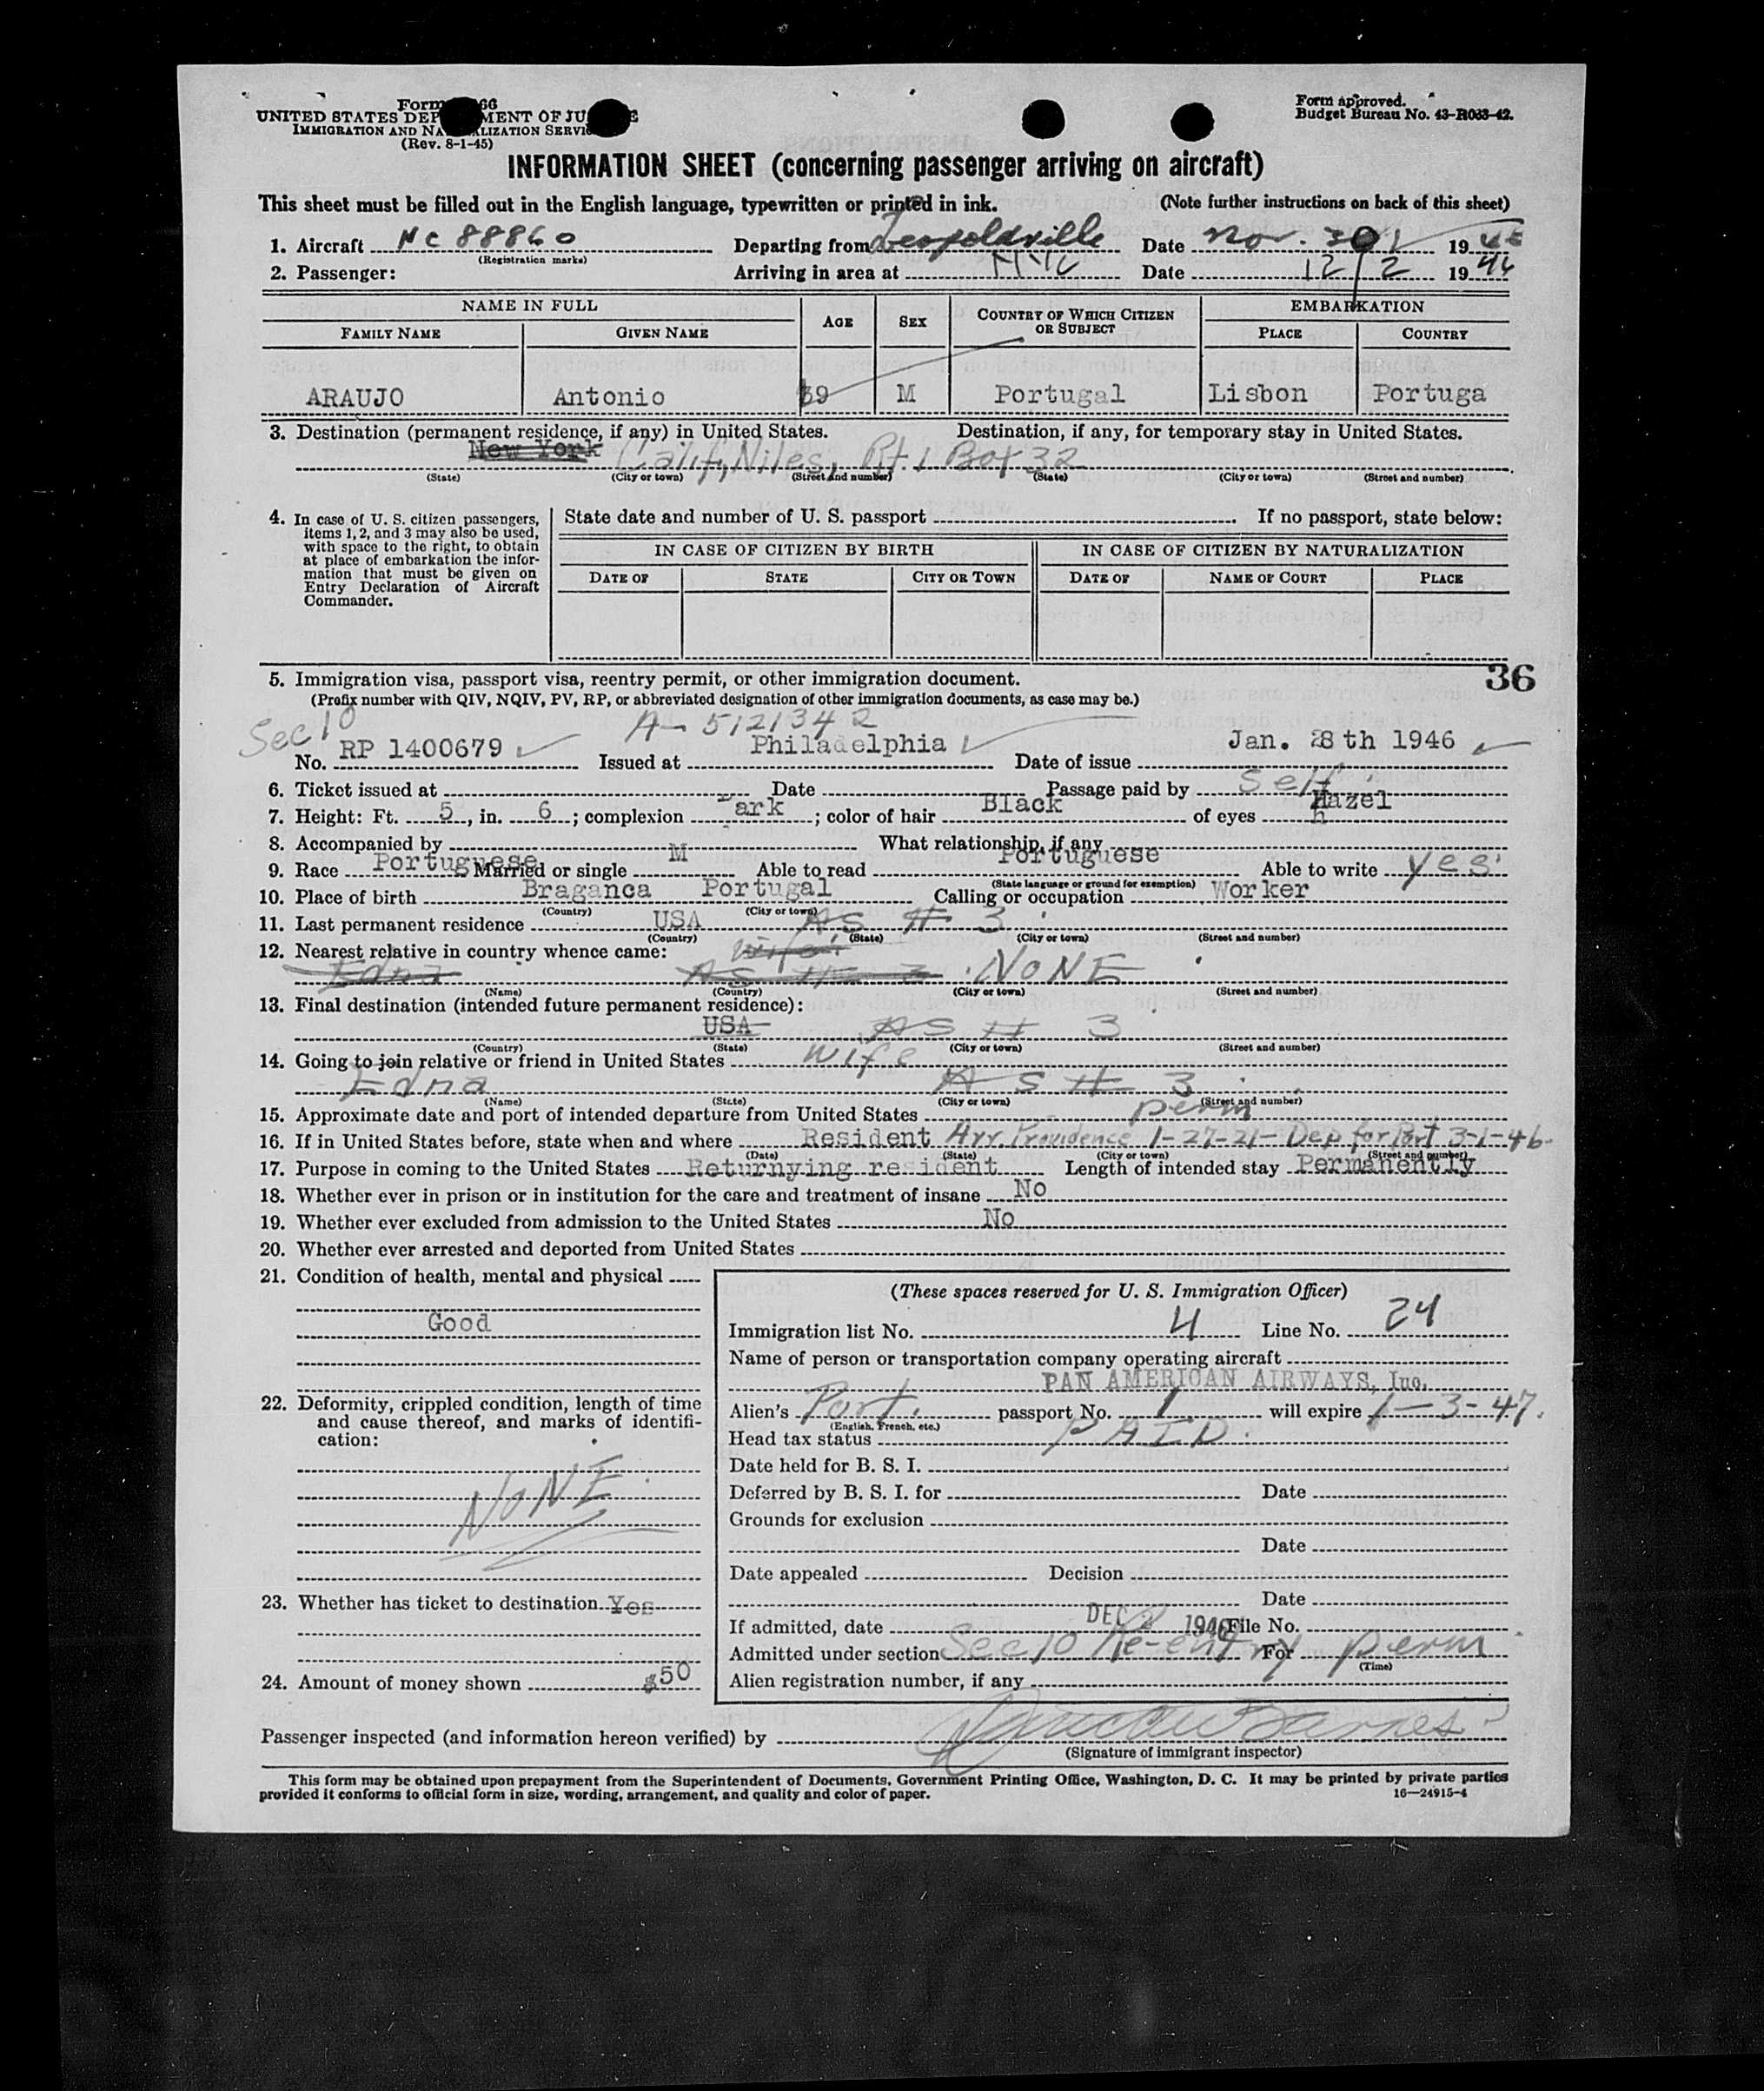 Form 66
Form approved.
UNITED STATES DEP MENT OF JU E
Budget Bureau No. 43-R033-42.
IMMIGRATION AND NA ALIZATION SERVI
(Rev. 8-1-45)
INFORMATION SHEET (concerning passenger arriving on aircraft)
This sheet must be filled out in the English language, typewritten or printed in ink. (Note further instructions on back of this sheet)
1. Aircraft NC 88860 Departing from Leopoldville Date Nov. 30 19 46
(Registration marks)
2. Passenger: Arriving in area at NYC Date 12/2 19 46
NAME IN FULL AGE SEX COUNTRY OF WHICH CITIZEN OR SUBJECT EMBARKATION
FAMILY NAME GIVEN NAME PLACE COUNTRY
ARAUJO Antonio 39 M Portugal Lisbon Portuga
3. Destination (permanent residence, if any) in United States. Destination, if any, for temporary stay in United States.
New York Calif, Niles, Rt. 1 Box 32
(State) (City or town) (Street and number) (State) (City or town) (Street and number)
4. In case of U. S. citizen passengers, items 1, 2, and 3 may also be used, with space to the right, to obtain at place of embarkation the information that must be given on Entry Declaration of Aircraft Commander.
State date and number of U. S. passport . If no passport, state below:
IN CASE OF CITIZEN BY BIRTH IN CASE OF CITIZEN BY NATURALIZATION
DATE OF STATE CITY OR TOWN DATE OF NAME OF COURT PLACE
36
5. Immigration visa, passport visa, reentry permit, or other immigration document.
(Prefix number with QIV, NQIV, PV, RP, or abbreviated designation of other immigration documents, as case may be.)
Sec 10 A- 5121342
No. RP 1400679 Issued at Philadelphia Date of issue Jan. 28th 1946
6. Ticket issued at Date Passage paid by Self
7. Height: Ft. 5, in. 6; complexion ark; color of hair Black of eyes Hazel
8. Accompanied by What relationship, if any
9. Race Portuguese Married or single M Able to read Portuguese Able to write yes
(State language or ground for exemption)
10. Place of birth Braganca Portugal Calling or occupation Worker
(Country) (City or town)
11. Last permanent residence USA AS # 3
(Country) (State) (City or town) (Street and number)
12. Nearest relative in country whence came: wife
Edna AS # 3 NONE
(Name) (Country) (City or town) (Street and number)
13. Final destination (intended future permanent residence):
USA AS # 3
(Country) (State) (City or town) (Street and number)
14. Going to join relative or friend in United States wife
Edna AS # 3
(Name) (State) (City or town) (Street and number)
15. Approximate date and port of intended departure from United States perm
16. If in United States before, state when and where Resident Arr. Providence 1-27-21- Dep for Port 3-1-46
(Date) (State) (City or town) (Street and number)
17. Purpose in coming to the United States Returnying resident Length of intended stay Permanently
18. Whether ever in prison or in institution for the care and treatment of insane No
19. Whether ever excluded from admission to the United States No
20. Whether ever arrested and deported from United States
21. Condition of health, mental and physical
Good
22. Deformity, crippled condition, length of time and cause thereof, and marks of identification:
NONE
23. Whether has ticket to destination Yes
24. Amount of money shown $50
(These spaces reserved for U. S. Immigration Officer)
Immigration list No. 4 Line No. 24
Name of person or transportation company operating aircraft
PAN AMERICAN AIRWAYS, Inc.
Alien's Port. passport No. 1 will expire 1-3-47.
(English, French, etc.)
Head tax status PAID
Date held for B. S. I.
Deferred by B. S. I. for Date
Grounds for exclusion
Date
Date appealed Decision
Date
If admitted, date DEC 2 1946 File No.
Admitted under section Sec 10 Re-entry For perm
(Time)
Alien registration number, if any
Passenger inspected (and information hereon verified) by Barnes
(Signature of immigrant inspector)
This form may be obtained upon prepayment from the Superintendent of Documents, Government Printing Office, Washington, D. C. It may be printed by private parties
provided it conforms to official form in size, wording, arrangement, and quality and color of paper. 16—24915-4